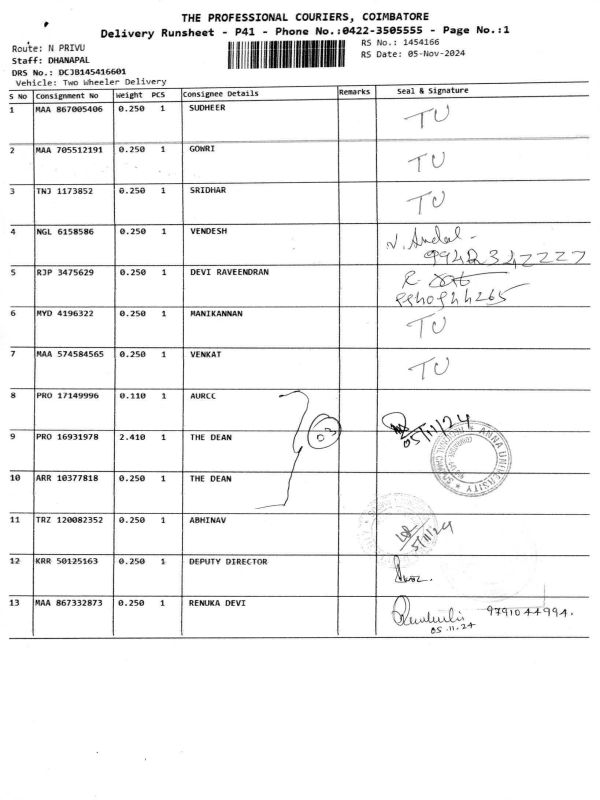 THE PROFESSIONAL COURIERS, COIMBATORE
Delivery Runsheet - P41 - Phone No.:0422-3505555 - Page No.:1
Route: N PRIVU
RS No.: 1454166
Staff: DHANAPAL
RS Date: 05-Nov-2024
DRS No.: DCJB145416601
Vehicle: Two Wheeler Delivery
S No Consignment No Weight PCS Consignee Details Remarks Seal & Signature
1 MAA 867005406 0.250 1 SUDHEER TU
2 MAA 705512191 0.250 1 GOWRI TU
3 TNJ 1173852 0.250 1 SRIDHAR TU
4 NGL 6158586 0.250 1 VENDESH
5 RJP 3475629 0.250 1 DEVI RAVEENDRAN
6 MYD 4196322 0.250 1 MANIKANNAN TU
7 MAA 574584565 0.250 1 VENKAT TU
8 PRO 17149996 0.110 1 AURCC 05/11/24
9 PRO 16931978 2.410 1 THE DEAN 03 ANNA UNIVERSITY
10 ARR 10377818 0.250 1 THE DEAN
11 TRZ 120082352 0.250 1 ABHINAV 5/11/24
12 KRR 50125163 0.250 1 DEPUTY DIRECTOR
13 MAA 867332873 0.250 1 RENUKA DEVI 9791044994.
05.11.24